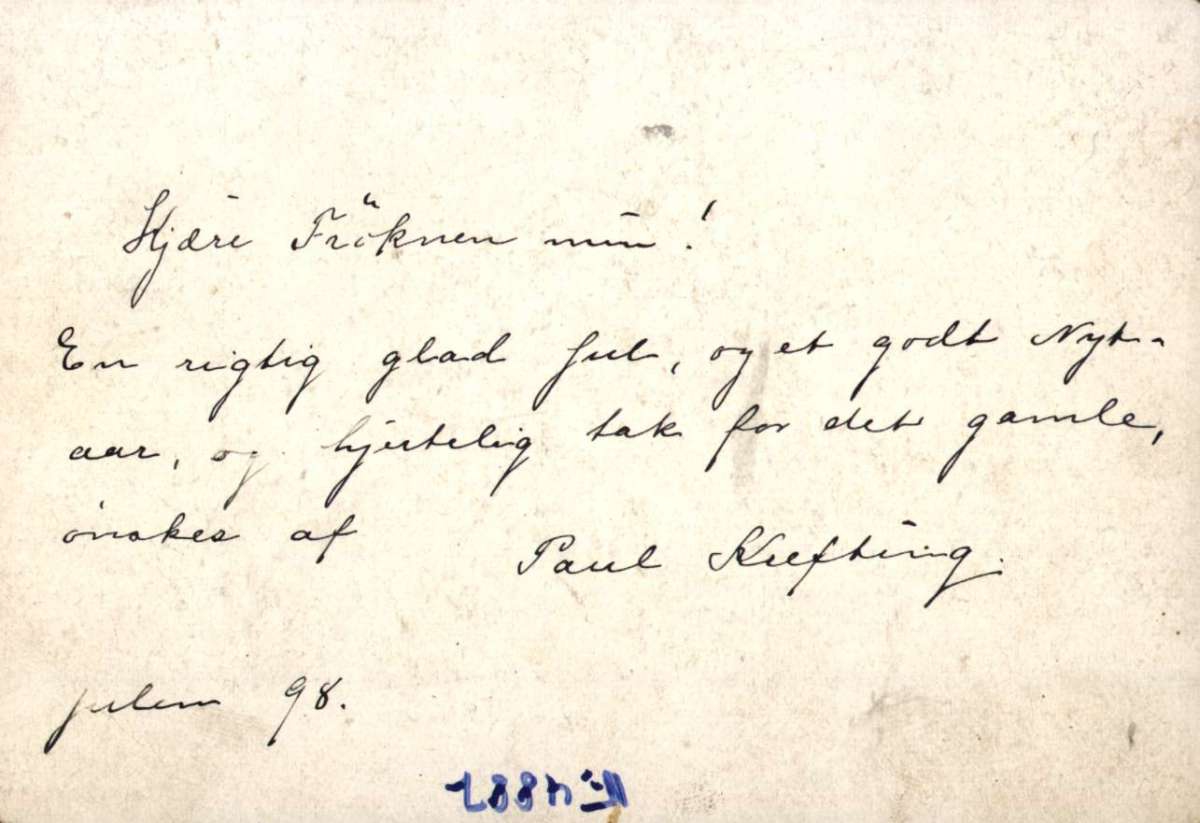 Kjære Fröknen min!
En rigtig glad Jul, og et godt Nyt-
aar, og hjertelig tak for det gamle,
ønskes af
Paul Krefting.
julem 98.
№ 4887